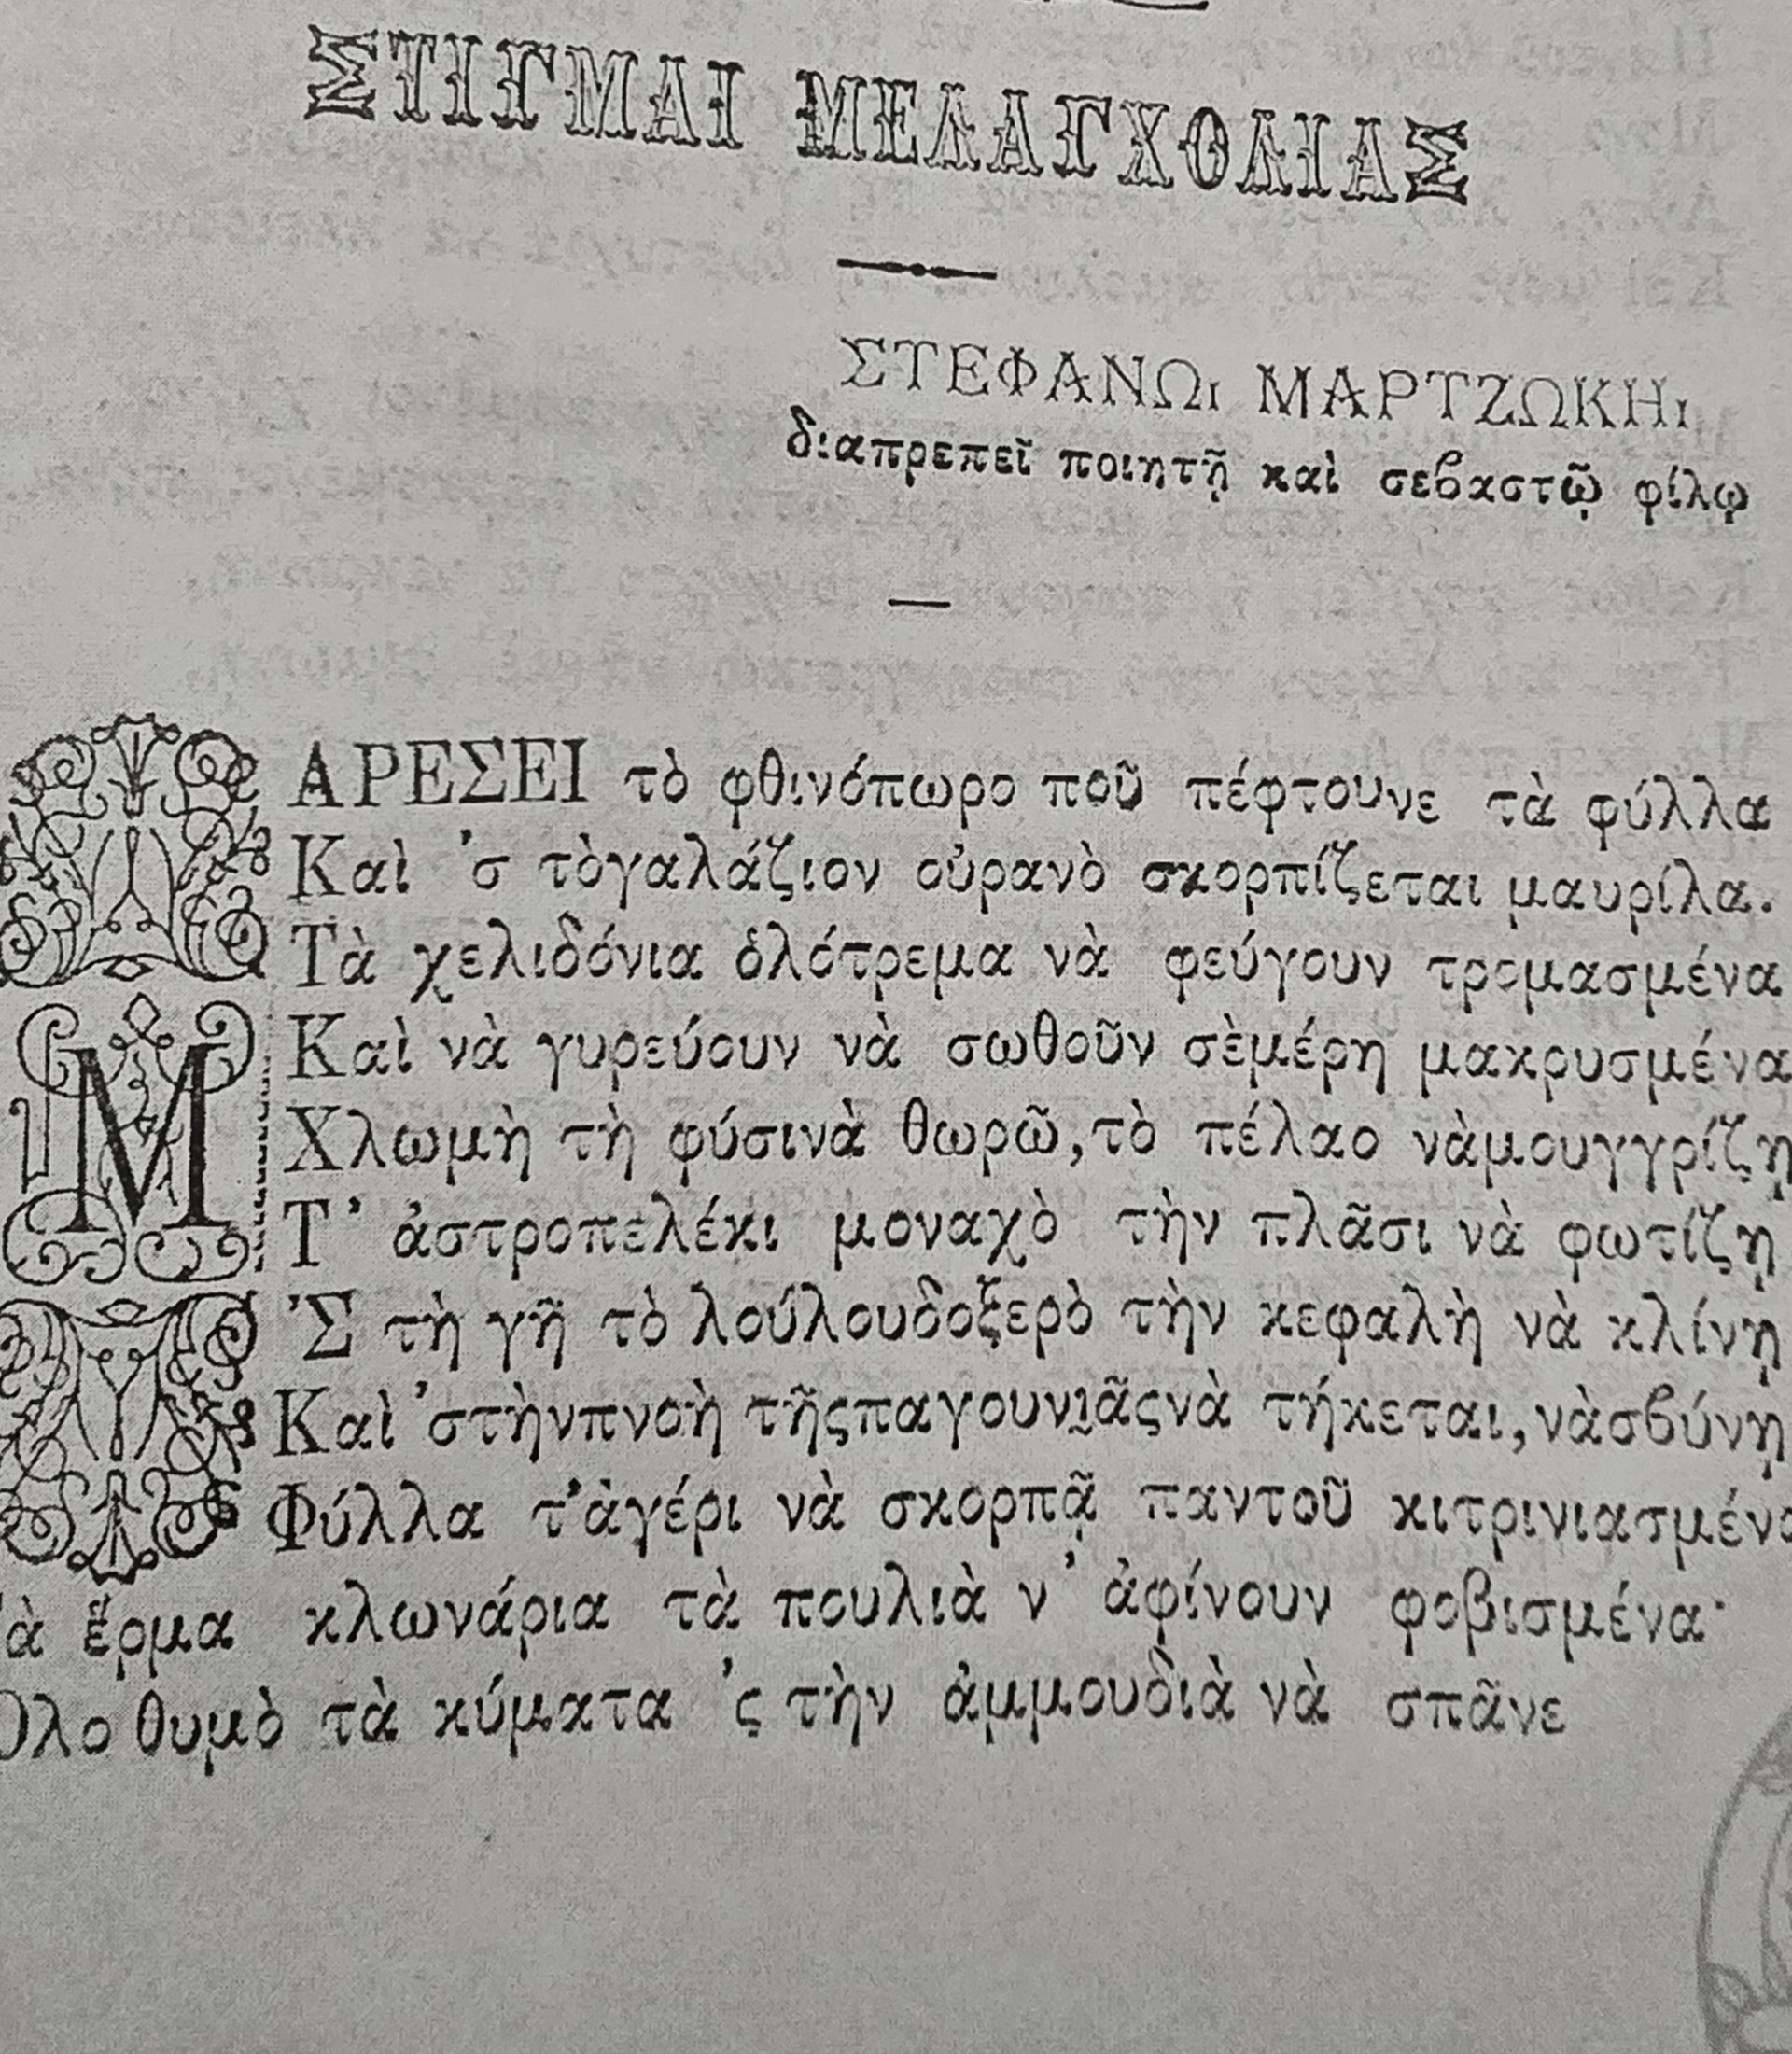 ΣΤΙΓΜΑΙ ΜΕΛΑΓΧΟΛΙΑΣ
ΣΤΕΦΑΝΩι ΜΑΡΤΖΩΚΗι
διαπρεπεῖ ποιητῇ καὶ σεβαστῷ φίλῳ
ΜΑΡΕΣΕΙ τὸ φθινόπωρο ποῦ πέφτουνε τὰ φύλλα
Καὶ 'σ τὸγαλάζιον οὐρανὸ σκορπίζεται μαυρίλα.
Τὰ χελιδόνια ὁλότρεμα νὰ φεύγουν τρομασμένα
Καὶ νὰ γυρεύουν νὰ σωθοῦν σὲμέρη μακρυσμένα
Χλωμὴ τὴ φύσινὰ θωρῶ, τὸ πέλαο νὰμουγγρίζῃ
Τ' ἀστροπελέκι μοναχὸ τὴν πλᾶσι νὰ φωτίζῃ
Ἐ τὴ γῆ τὸ λούλουδοξερὸ τὴν κεφαλὴ νὰ κλίνῃ
Καὶ 'στὴνπνοὴ τῆςπαγουνιᾶςνὰ τήκεται, νὰσβύνῃ
Φύλλα τ' ἀγέρι νὰ σκορπᾷ παντοῦ κιτρινιασμένα
Τὰ ἔρμα κλωνάρια τὰ πουλιὰ ν' ἀφίνουν φοβισμένα·
Ὅλο θυμὸ τὰ κύματα 'ς τὴν ἀμμουδιὰ νὰ σπᾶνε